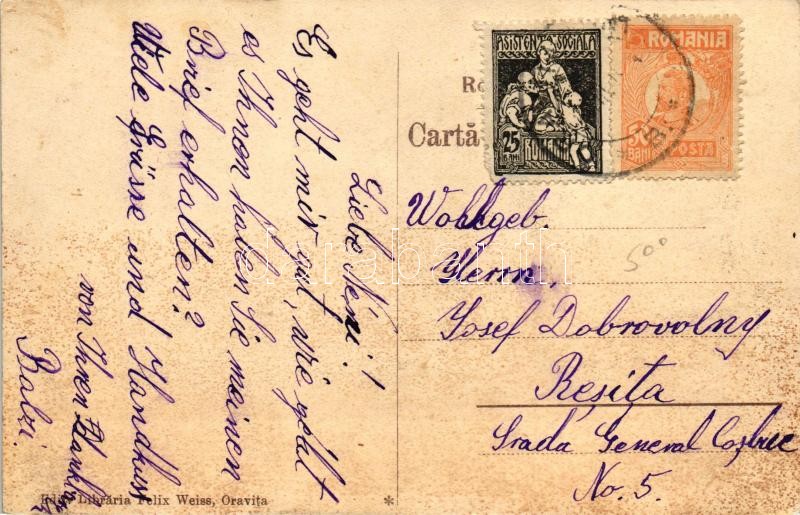 Liebe Néni!
Es geht mir gut, wie geht
es Ihnon haben Sie meinen
Brief erhalten?
Viele Grüsse und Handkuss
von Ihren
Balzi.
ASISTENȚA SOCIALA
25
BANI
ROMANIA
ROMANIA
50
BANI POSTA
Ro
Cartă
Wohlgeb.
Herrn,
Josef Dobrovolny
Reșița
Srada General Coșbuc
No. 5.
500
darabanth
Edit. Librăria Felix Weiss, Oravița
*